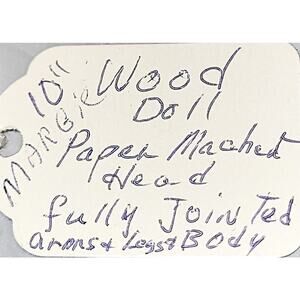 10" Wood
Doll
MARGIE
Paper Machet
Head
fully Jointed
arms & Legs & Body